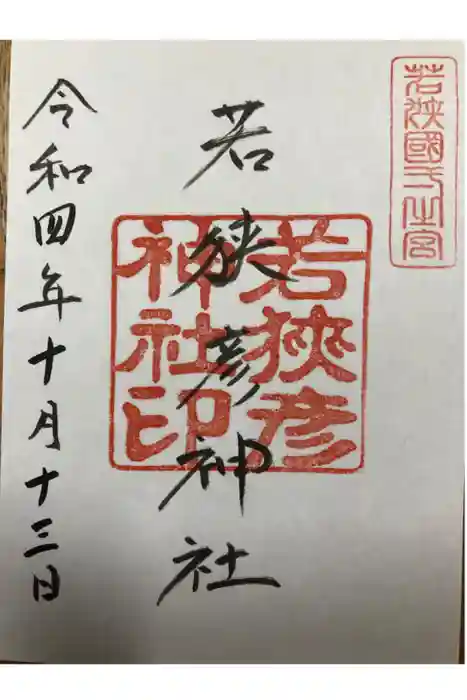 若狭國一之宮
若狭彦神社
若狭彦
神社印
令和四年十月十三日